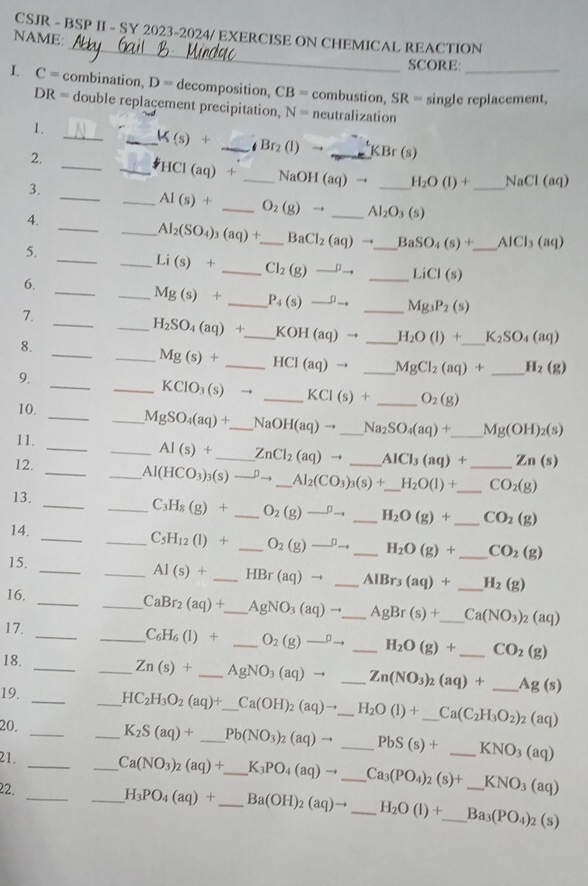 CSJR - BSP II - SY 2023-2024/ EXERCISE ON CHEMICAL REACTION
NAME: Abby Gail B. Mindac SCORE: ____
I. C = combination, D = decomposition, CB = combustion, SR = single replacement,
DR = double replacement precipitation, N = neutralization
1. N ____ K (s) + ____ Br₂ (l) → ____ KBr (s)
2. ____ ____ HCl (aq) + ____ NaOH (aq) → ____ H₂O (l) + ____ NaCl (aq)
3. ____ ____ Al (s) + ____ O₂ (g) → ____ Al₂O₃ (s)
4. ____ ____ Al₂(SO₄)₃ (aq) + ____ BaCl₂ (aq) → ____ BaSO₄ (s) + ____ AlCl₃ (aq)
5. ____ ____ Li (s) + ____ Cl₂ (g) —▯→ ____ LiCl (s)
6. ____ ____ Mg (s) + ____ P₄ (s) —▯→ ____ Mg₃P₂ (s)
7. ____ ____ H₂SO₄ (aq) + ____ KOH (aq) → ____ H₂O (l) + ____ K₂SO₄ (aq)
8. ____ ____ Mg (s) + ____ HCl (aq) → ____ MgCl₂ (aq) + ____ H₂ (g)
9. ____ ____ KClO₃ (s) → ____ KCl (s) + ____ O₂ (g)
10. ____ ____ MgSO₄(aq) + ____ NaOH(aq) → ____ Na₂SO₄(aq) + ____ Mg(OH)₂(s)
11. ____ ____ Al (s) + ____ ZnCl₂ (aq) → ____ AlCl₃ (aq) + ____ Zn (s)
12. ____ ____ Al(HCO₃)₃(s) —▯→ ____ Al₂(CO₃)₃(s) + ____ H₂O(l) + ____ CO₂(g)
13. ____ ____ C₃H₈ (g) + ____ O₂ (g) —▯→ ____ H₂O (g) + ____ CO₂ (g)
14. ____ ____ C₅H₁₂ (l) + ____ O₂ (g) —▯→ ____ H₂O (g) + ____ CO₂ (g)
15. ____ ____ Al (s) + ____ HBr (aq) → ____ AlBr₃ (aq) + ____ H₂ (g)
16. ____ ____ CaBr₂ (aq) + ____ AgNO₃ (aq) → ____ AgBr (s) + ____ Ca(NO₃)₂ (aq)
17. ____ ____ C₆H₆ (l) + ____ O₂ (g) —▯→ ____ H₂O (g) + ____ CO₂ (g)
18. ____ ____ Zn (s) + ____ AgNO₃ (aq) → ____ Zn(NO₃)₂ (aq) + ____ Ag (s)
19. ____ ____ HC₂H₃O₂ (aq)+ ____ Ca(OH)₂ (aq)→ ____ H₂O (l) + ____ Ca(C₂H₃O₂)₂ (aq)
20. ____ ____ K₂S (aq) + ____ Pb(NO₃)₂ (aq) → ____ PbS (s) + ____ KNO₃ (aq)
21. ____ ____ Ca(NO₃)₂ (aq) + ____ K₃PO₄ (aq) → ____ Ca₃(PO₄)₂ (s)+ ____ KNO₃ (aq)
22. ____ ____ H₃PO₄ (aq) + ____ Ba(OH)₂ (aq)→ ____ H₂O (l) + ____ Ba₃(PO₄)₂ (s)